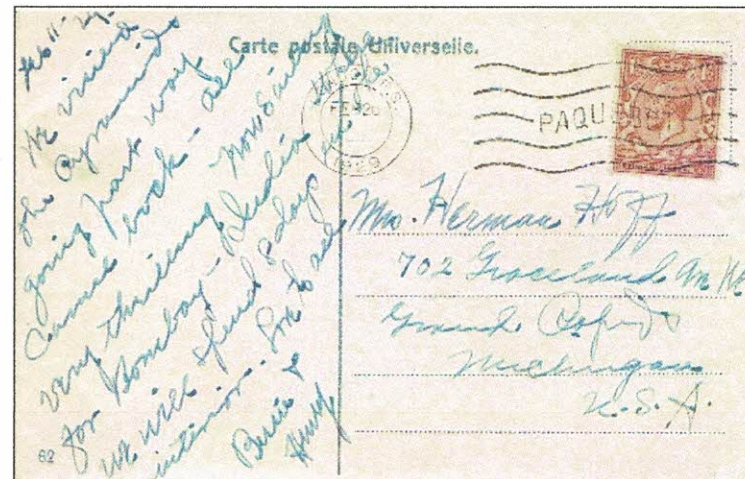 Carte postale Universelle.
FEB 26
1929
PAQUEBOT
Feb 11-29-
We visited
the Pyramids
going part way
Camel back - all
very thrilling Now Sailing
for Bombay - India
we will spend 8 days in the
interior. Love to all
&
Henry
Mrs. Herman Hoff
702 Graceland
Grand Rapids
Michigan
U.S.A.
62